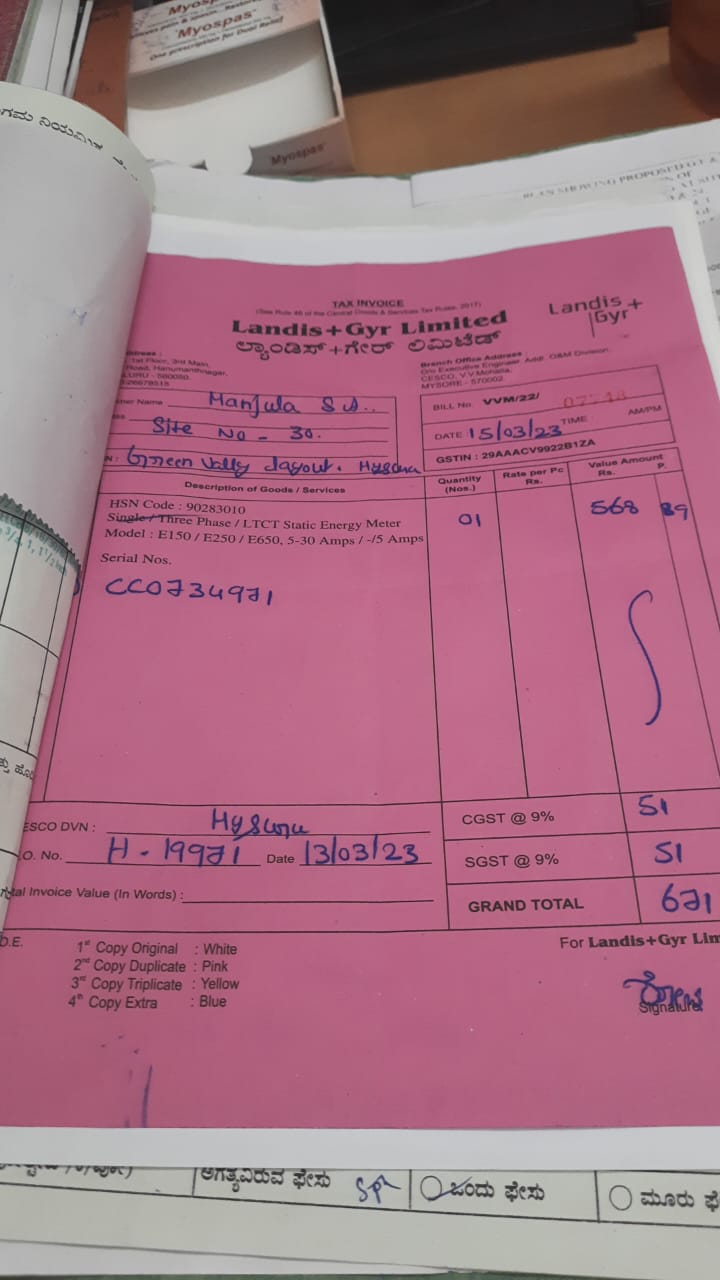 Myospas
One prescription for Dual Relief
Myospas
TAX INVOICE
(See Rule 46 of the Central Goods & Services Tax Rules, 2017)
Landis+Gyr Limited
ಲ್ಯಾಂಡಿಸ್+ಗೇರ್ ಲಿಮಿಟೆಡ್
Landis+
Gyr
1st Floor, 3rd Main,
Road, Hanumanthnagar,
Branch Office Address
O/o Executive Engineer, Addl. O&M Division,
CESCO, V.V.Mohalla,
MYSORE - 570002
Name Manjula S
BILL No. VVM/22/
Site No - 30.
DATE 15/03/23 TIME AM/PM
Green Vally Layout.
GSTIN : 29AAACV9922B1ZA
Description of Goods / Services
Quantity
(Nos.)
Rate per Pc
Rs.
Value Amount
Rs. P.
HSN Code : 90283010
Single / Three Phase / LTCT Static Energy Meter
Model : E150 / E250 / E650, 5-30 Amps / -/5 Amps
01
568 89
Serial Nos.
CC0734971
ESCO DVN :
CGST @ 9% 51
O. No. H - 19971 Date 13/03/23
SGST @ 9% 51
Invoice Value (In Words) :
GRAND TOTAL 671
D.E.
1st Copy Original : White
2nd Copy Duplicate : Pink
3rd Copy Triplicate : Yellow
4th Copy Extra : Blue
For Landis+Gyr Lim
Signature
ಅಗತ್ಯವಿರುವ ಫೇಸು
ಒಂದು ಫೇಸು
ಮೂರು ಫೆ